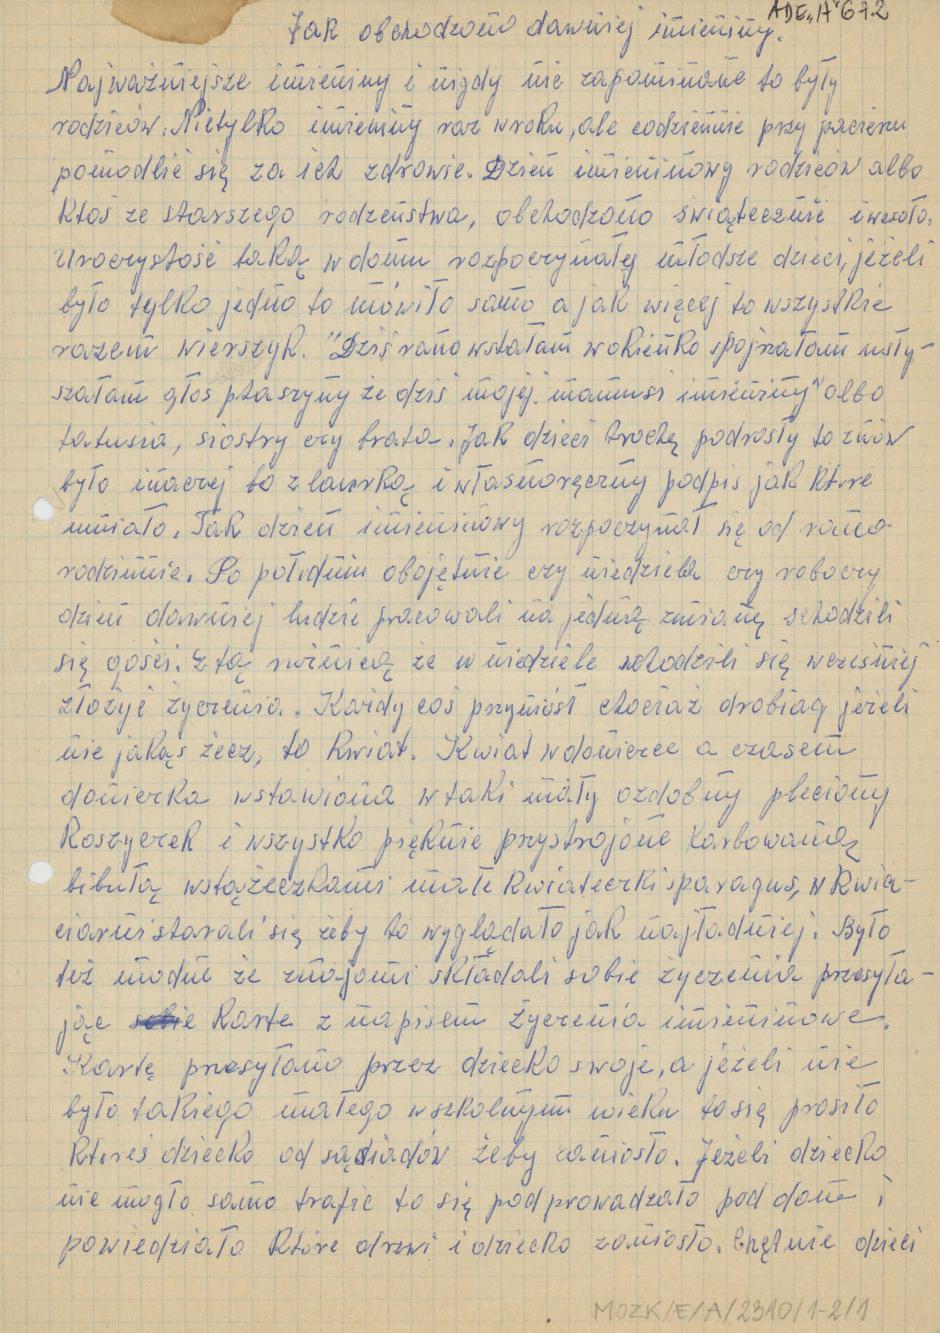 ADE „A" 672
Jak obchodzono dawniej imieniny.
Najważniejsze imieniny i nigdy nie zapominane to były
rodziców. Nietylko imieniny raz wroku, ale codziennie przy pacierzu
pomodlić się za ich zdrowie. Dzień imieninowy rodziców albo
ktoś ze starszego rodzeństwa, obchodzono świątecznie iwesoło.
Uroczystość taką wdomu rozpoczynały młodsze dzieci, jeżeli
było tylko jedno to mówiło samo a jak więcej to wszystkie
razem wierszyk. "Dziś rano wstałam wokienko spojrzałam usły-
szałam głos ptaszyny że dziś mojej mamusi imieniny" albo
tatusia, siostry czy brata. Jak dzieci trochę podrosły to znów
było inaczej bo z laurką i własnoręczny podpis jak które
umiało. Tak dzień imieninowy rozpoczynał się od rana
rodzinnie. Po połudmiu obojętnie czy niedziela czy roboczy
dzień dawniej ludzie pracowali na jedną zmianę schodzili
się gości. Z tą różnicą że w niedziele schodzili się wcześniej
złożyć życzenia. Każdy coś przyniósł chociaż drobiag jeżeli
nie jakąś żecz, to kwiat. Kwiat wdonicce a czasem
doniczka wstawiona w taki mały ozdobny pleciony
koszyczek i wszystko pięknie przystrojone karbowaną
bibułą wstążeczkami małe kwiateczki sparagus, w kwia-
ciarni starali się żeby to wyglądało jak najładniej. Było
też modne że znajomi składali sobie życzenia przesyła-
jąc karte z napisem życzenia imieninowe.
Kartę przesyłano przez dziecko swoje, a jeżeli nie
było takiego małego wszkolnym wieku tosię prosiło
któreś dziecko od sąsiadów żeby zaniosło. Jeżeli dziecko
nie mogło samo trafić to się podprowadzało pod dom i
powiedziało które drzwi i dziecko zaniosło. Chętnie dzieci
MOZK/E/A/2310/1-2/1